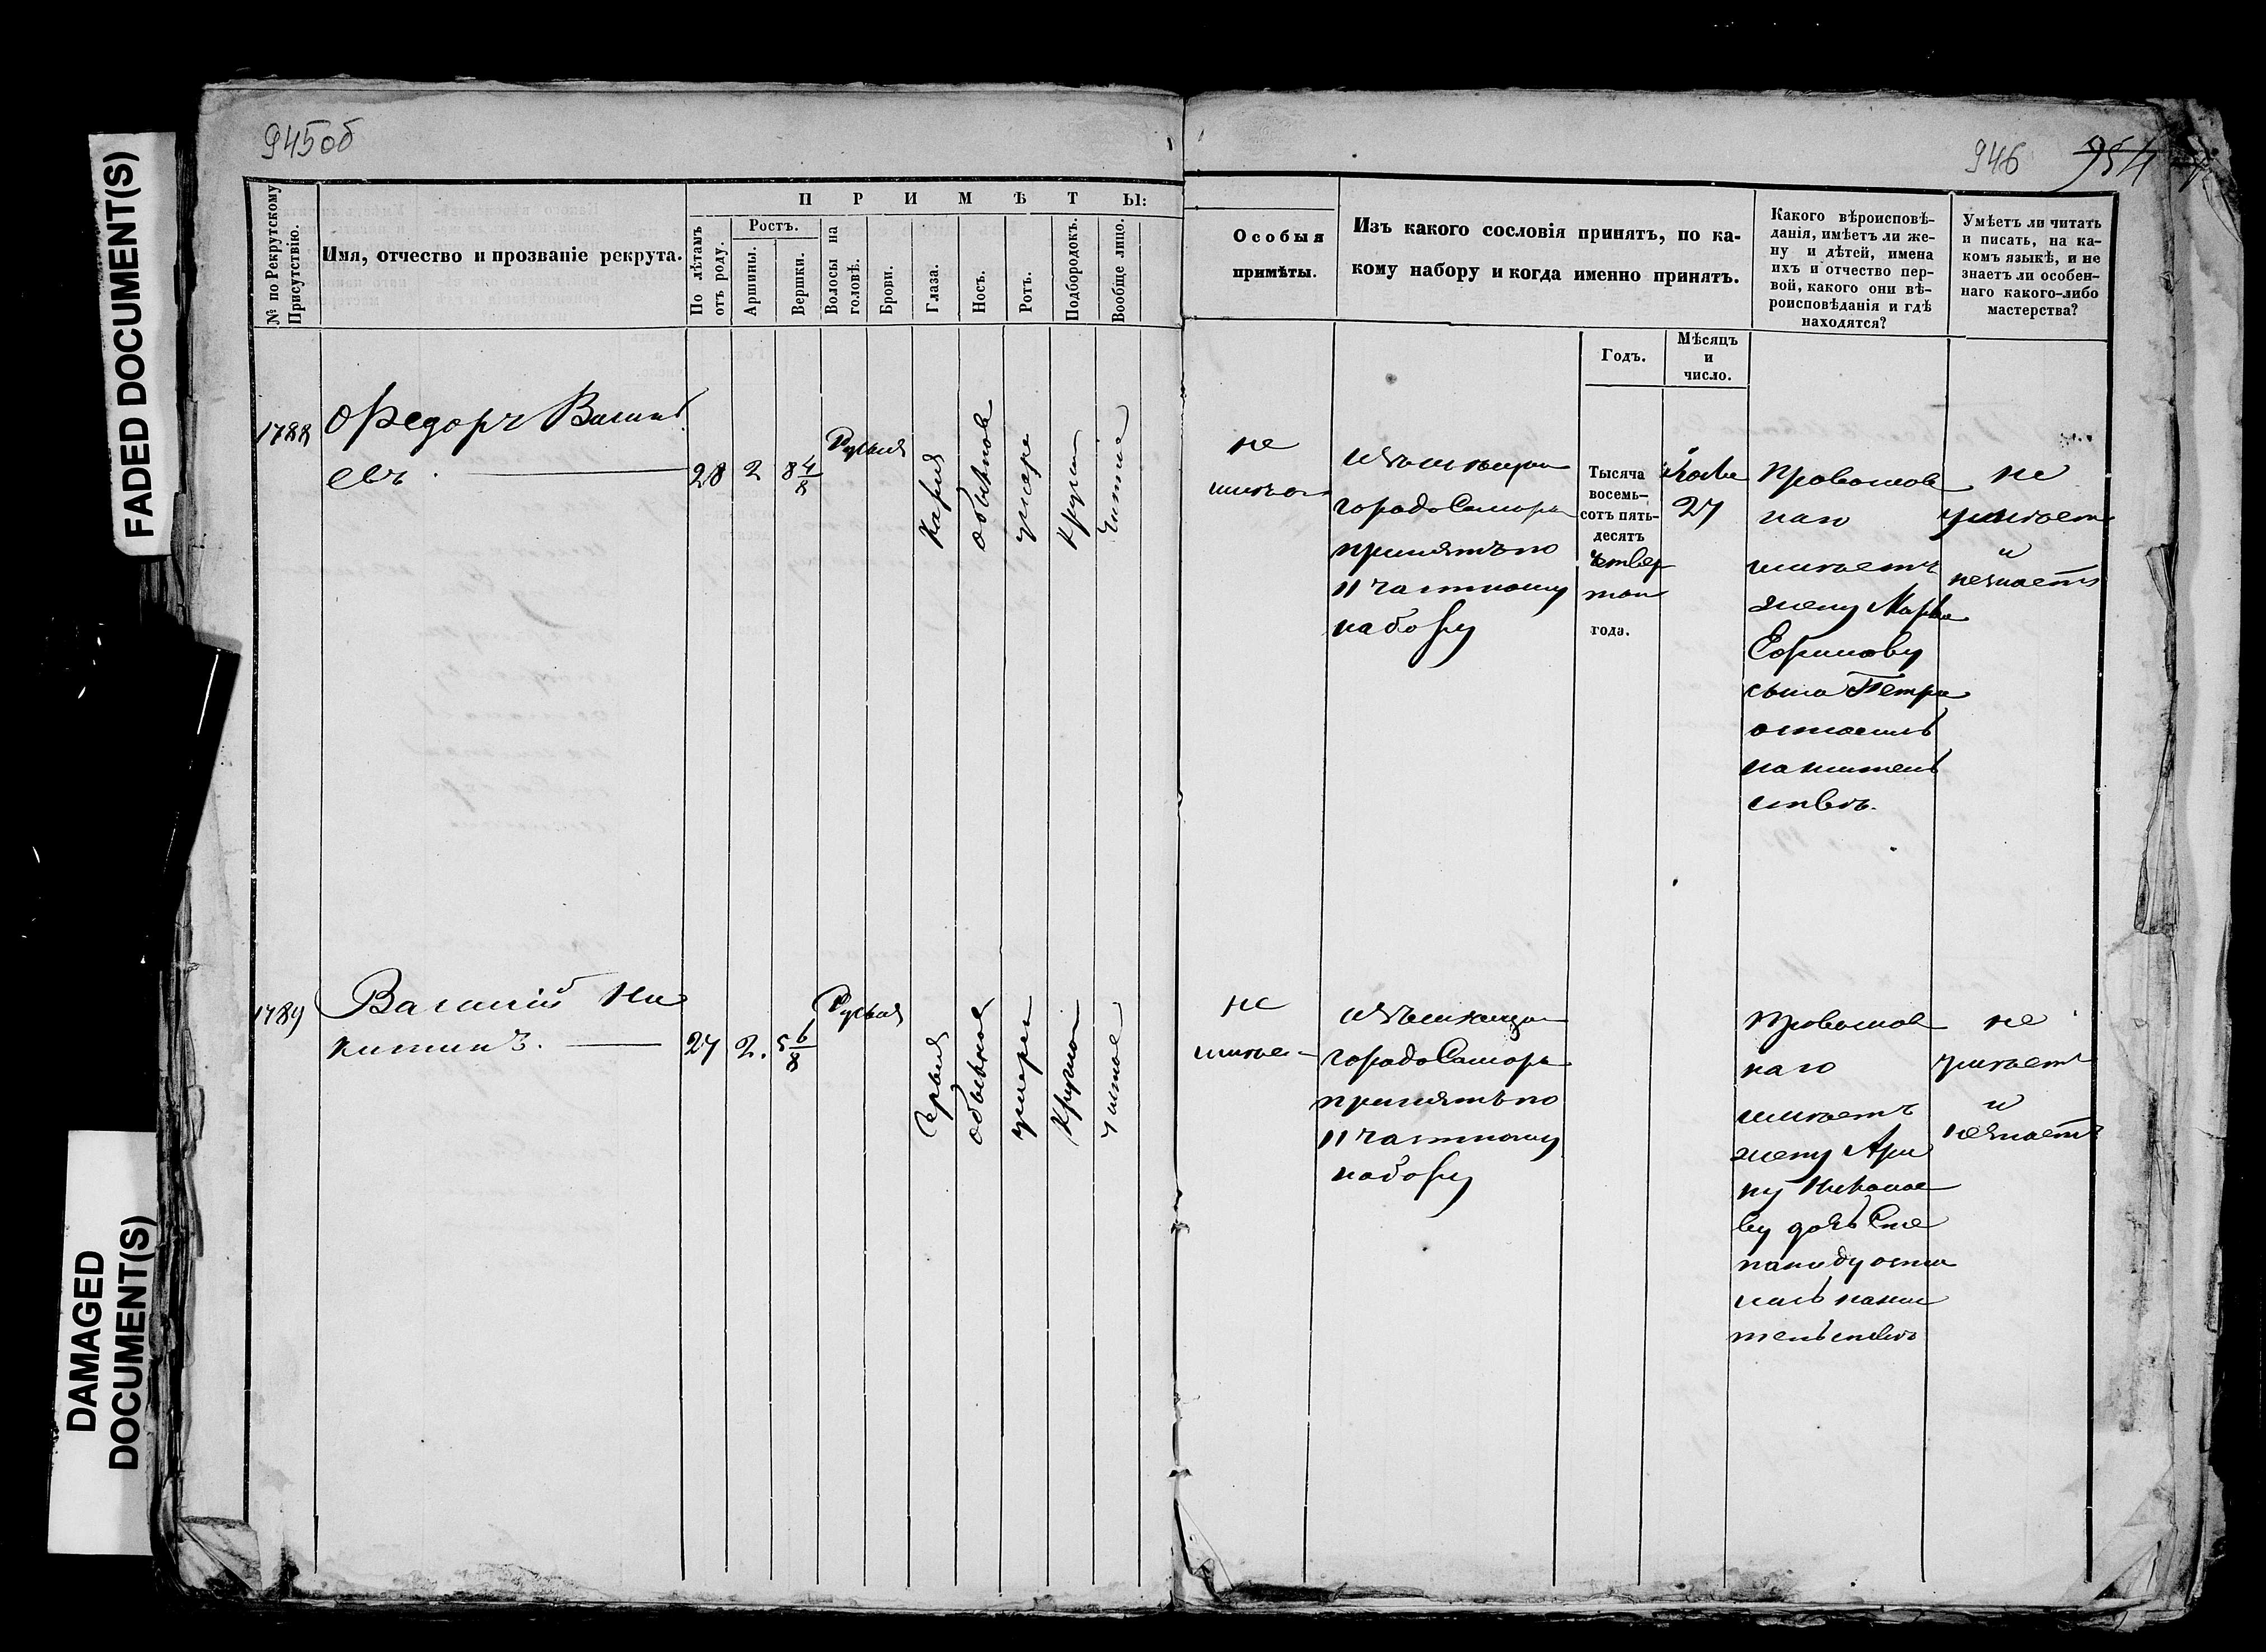 945об
946 954
FADED DOCUMENT(S)
DAMAGED
DOCUMENT(S)
№ по Рекрутскому
Присутствію.
Имя, отчество и прозваніе рекрута.
ПРИМѢТЫ:
По лѣтамъ
отъ роду.
Ростъ.
Аршины.
Вершки.
Волосы на
головѣ.
Брови.
Глаза.
Носъ.
Ротъ.
Подбородокъ.
Вообще лицо.
Особыя
примѣты.
Изъ какого сословія принятъ, по ка-
кому набору и когда именно принятъ.
Годъ.
Мѣсяцъ
и
число.
Какого вѣроисповѣ-
данія, имѣетъ ли же-
ну и дѣтей, имена
ихъ и отчество пер-
вой, какого они вѣ-
роисповѣданія и гдѣ
находятся?
Умѣетъ ли читать
и писать, на ка-
комъ языкѣ, и не
знаетъ ли особен-
наго какого-либо
мастерства?
1788
Федоръ Василь
евъ.
28
2
8 4/8
Русыя
Кария
обыкнов
умере
кругл
Чистое
не
имѣе
измѣщан
города Самары
принятъ по
11 частному
набору
Тысяча
восемь-
сотъ пять-
десятъ
четвер
таго
года.
27
Православ
наго
имѣетъ
жену Марью
Ефимову
сына Петра
оставилъ
на житель
ствѣ.
не
умѣетъ
и
незнаетъ
1789
Василій Ни
китинъ.
27
2.
5 6/8
Русыя
Серыя
обыкнов
умере
Круглой
чистое
не
имѣе
измѣщан
города Самары
принятъ по
11 частному
набору
Православ
наго
имѣетъ
жену Ари
ну Николае
ву дочь Сте
паниду оста
вилъ на жи
тельствѣ
не
умѣетъ
и
незнаетъ